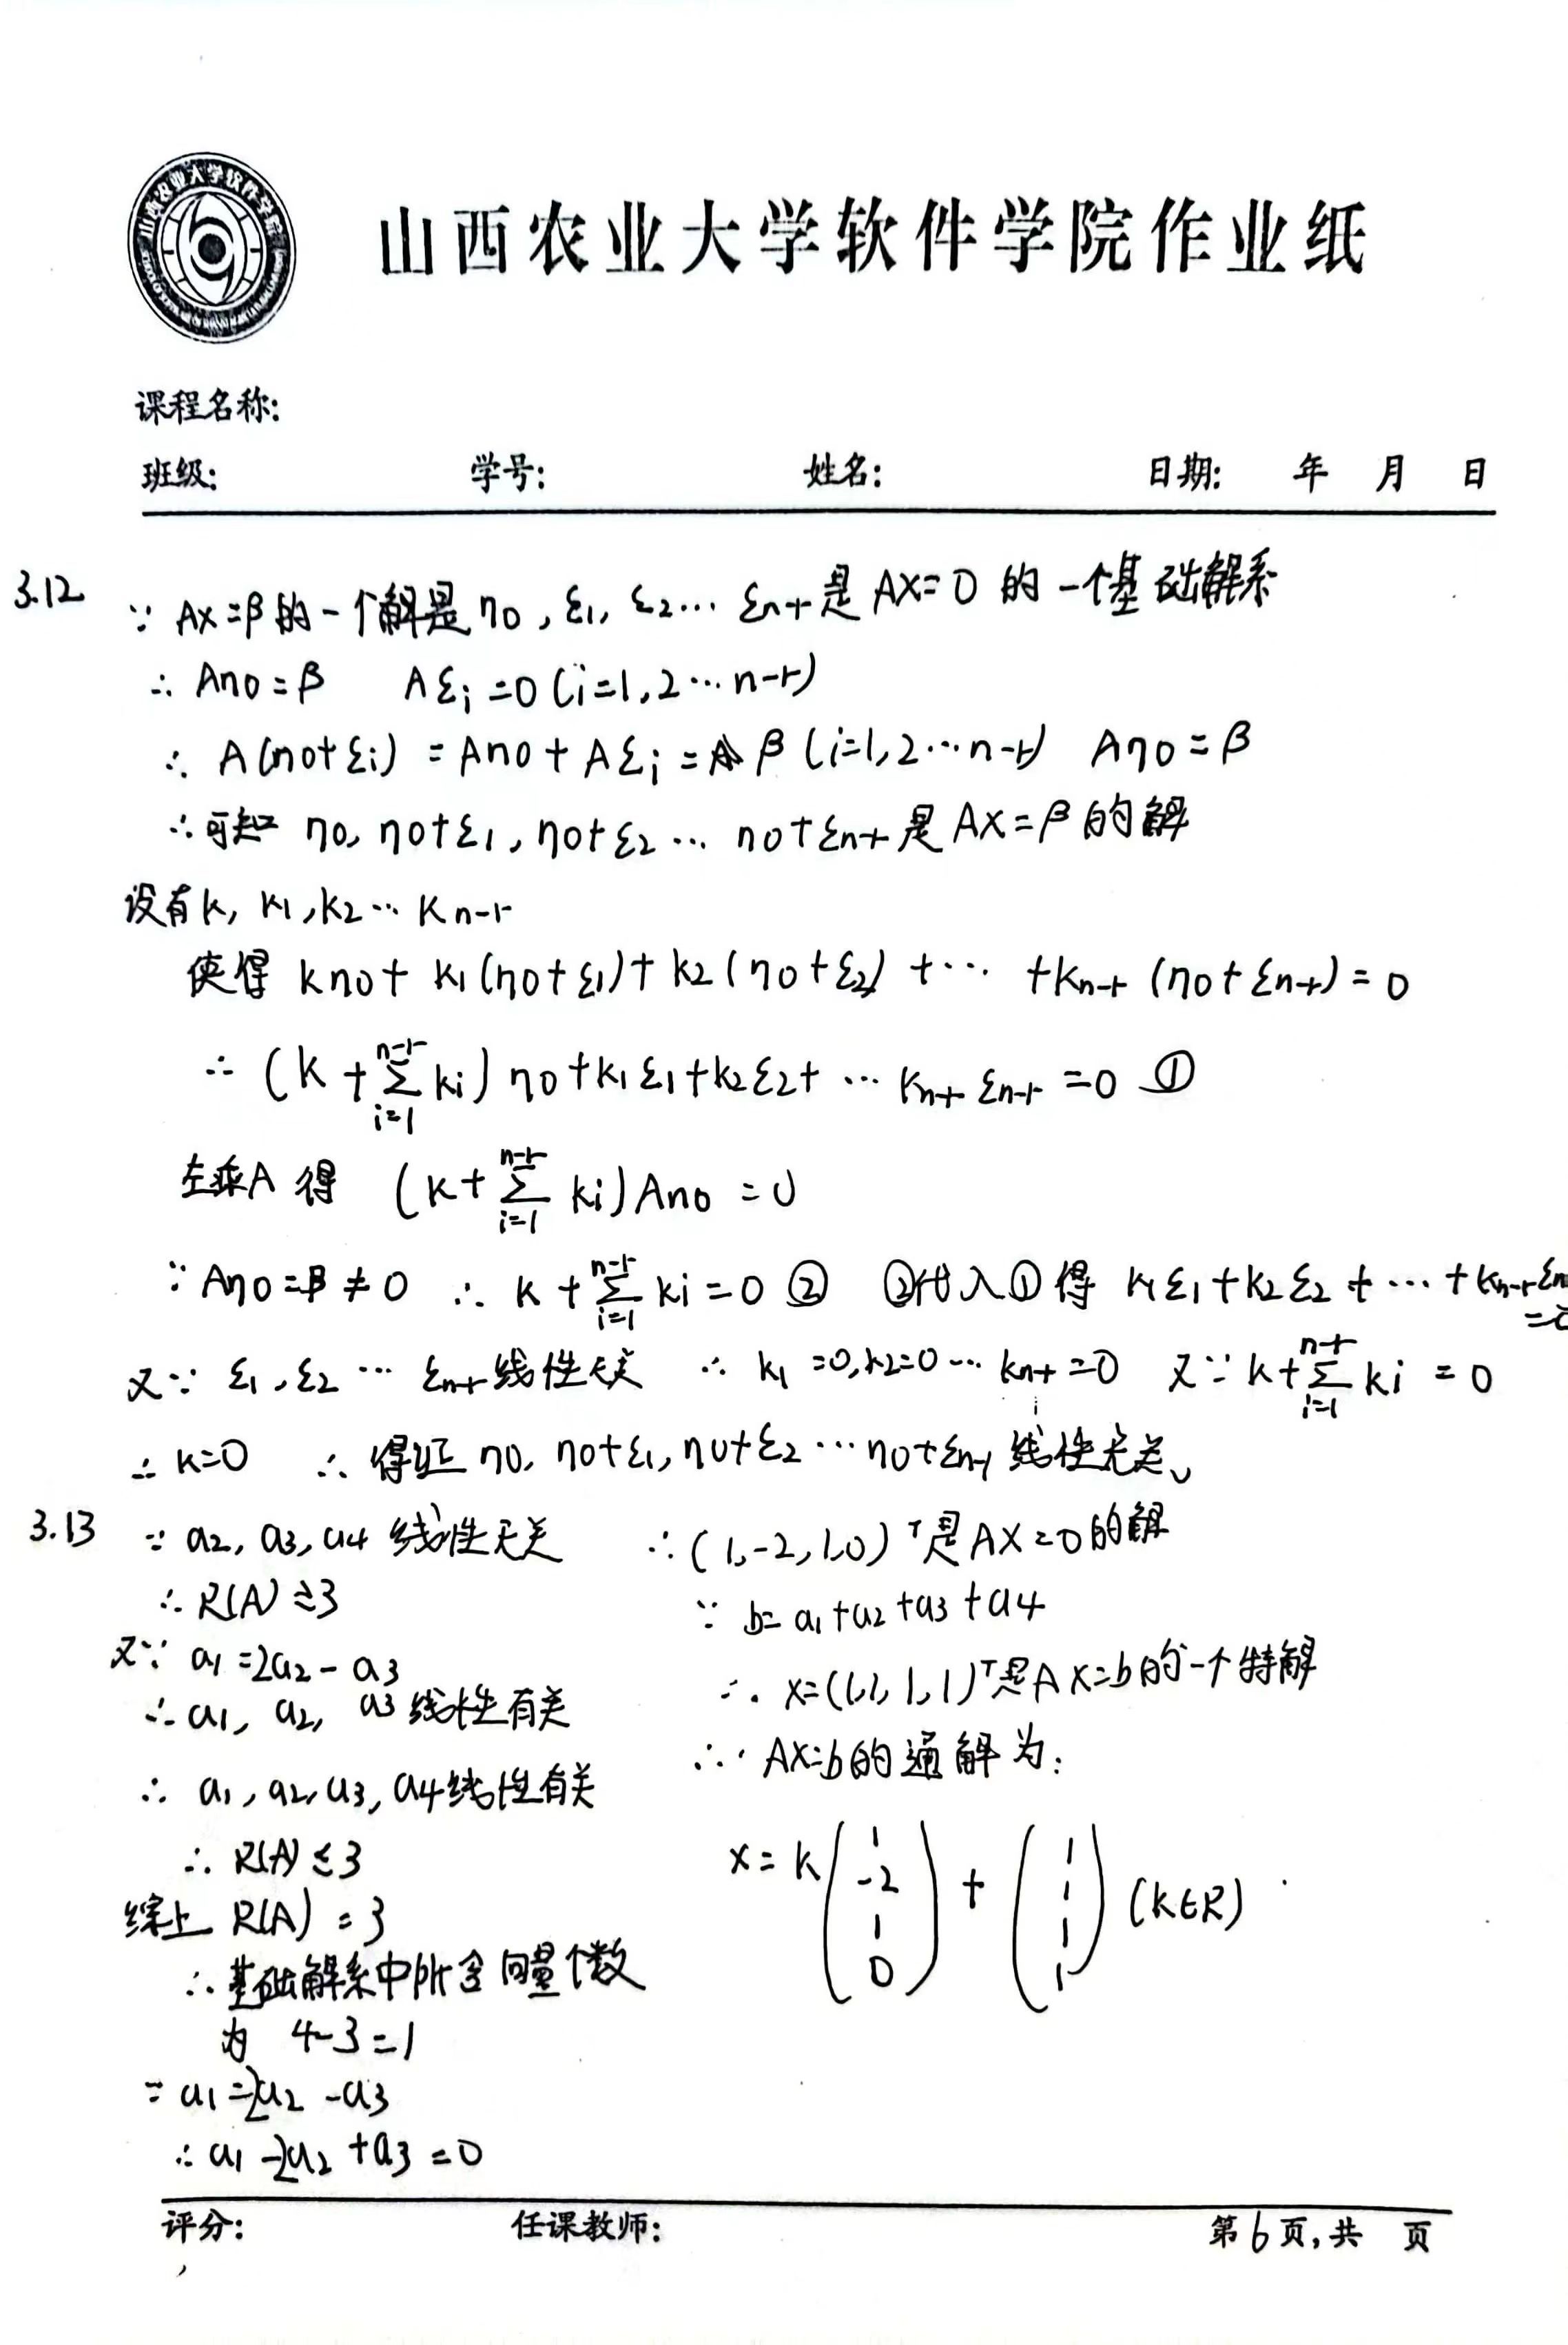 山西农业大学软件学院
山西农业大学软件学院作业纸
课程名称:
班级: 学号: 姓名: 日期: 年 月 日
3.12 ∵ AX=β的一个解是η0, ε1, ε2… εn-r是AX=0的一个基础解系
∴ Aη0=β Aεi=0 (i=1,2…n-r)
∴ A(η0+εi) = Aη0+Aεi = β (i=1,2…n-r) Aη0=β
∴可知 η0, η0+ε1, η0+ε2 … η0+εn-r是AX=β的解
设有k, k1, k2 … kn-r
使得 kη0+ k1(η0+ε1)+k2(η0+ε2) +… +kn-r (η0+εn-r)=0
∴ (k+∑(i=1..n-r) ki) η0+k1ε1+k2ε2+ … kn-r εn-r =0 ①
左乘A 得 (k+∑(i=1..n-r) ki)Aη0 =0
∵ Aη0=β≠0 ∴ k+∑(i=1..n-r) ki=0 ② ②代入①得 k1ε1+k2ε2+…+kn-r εn =0
又∵ ε1, ε2 … εn-r线性无关 ∴ k1=0, k2=0… kn-r=0 又∵ k+∑(i=1..n-r) ki =0
∴ k=0 ∴ 得证 η0, η0+ε1, η0+ε2 … η0+εn-r 线性无关、
3.13 ∵ a2, a3, a4 线性无关
∴ R(A)≥3
又∵ a1=2a2-a3
∴ a1, a2, a3线性有关
∴ a1, a2, a3, a4线性有关
∴ R(A)≤3
综上 R(A)=3
∴基础解系中所含向量个数
为 4-3=1
∵ a1=2a2-a3
∴ a1-2a2+a3=0
∴ (1,-2,1,0)ᵀ是AX=0的解
∵ b=a1+a2+a3+a4
∴ x=(1,1,1,1)ᵀ是AX=b的一个特解
∴ AX=b的通解为:
x=k(1 -2 1 0) + (1 1 1 1) (k∈R)
评分: 任课教师: 第6页,共 页